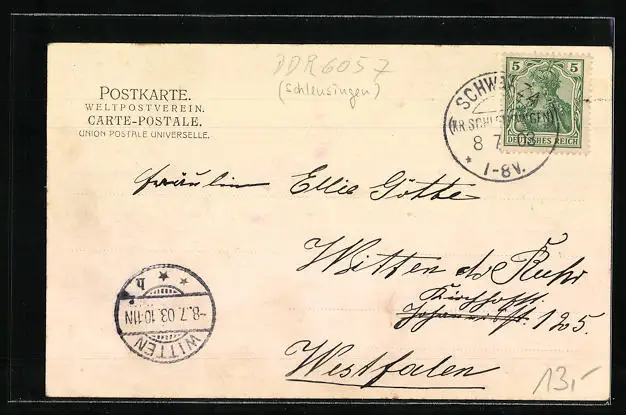 DDR6057
(Schleusingen)
POSTKARTE.
WELTPOSTVEREIN.
CARTE-POSTALE.
UNION POSTALE UNIVERSELLE.
5 5
DEUTSCHES REICH
SCHWARZA
(KR.SCHLEUSINGEN)
8 7 03
* 1-8V.
Fräulein Ellie Götte
Witten a/d Ruhr
Kirchhoffstr.
Johannisst. 125.
Westfalen
* * * b
-8.7.03.10-11N
WITTEN
13,-